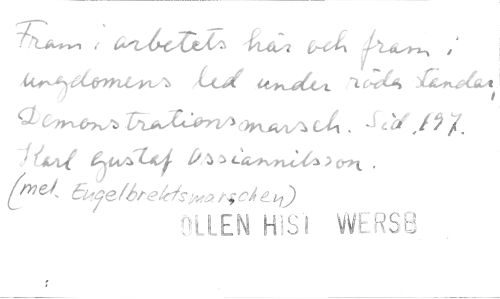 Fram i arbetets här och fram i
ungdomens led under röda standar,
Demonstrationsmarsch. Sid. 197.
Karl Gustaf Ossiannilsson.
(mel. Engelbrektsmarschen)
OLLEN HISI WERSB